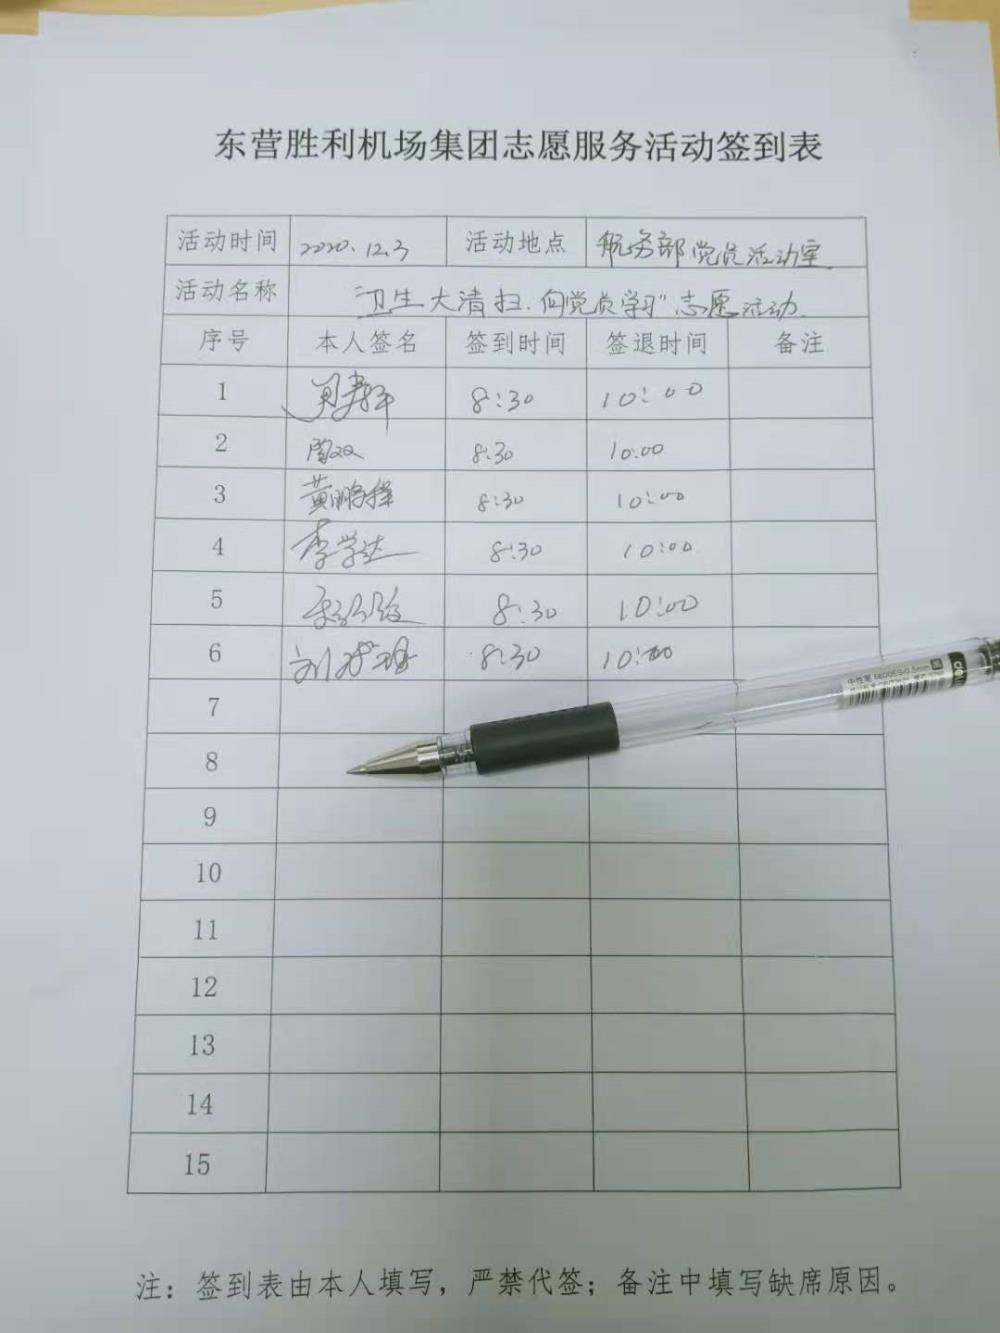 东营胜利机场集团志愿服务活动签到表
活动时间 2020.12.3 活动地点 航务部党员活动室
活动名称 "卫生大清扫.向党员学习"志愿活动
序号 本人签名 签到时间 签退时间 备注
1 8:30 10:00
2 8:30 10:00
3 黄鹏 8:30 10:00
4 李学达 8:30 10:00
5 8:30 10:00
6 刘 8:30 10:00
7
8
9
10
11
12
13
14
15
注：签到表由本人填写，严禁代签；备注中填写缺席原因。
中性笔